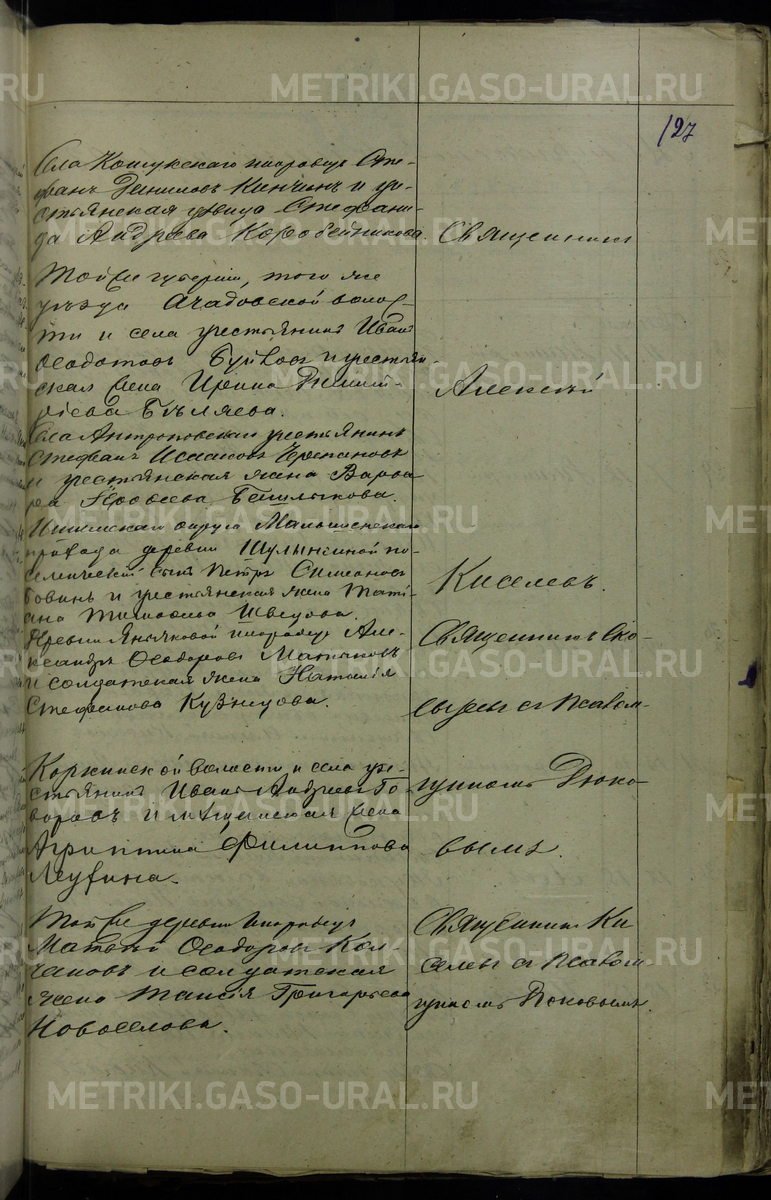 127
Села Кошукскаго инородецъ Сте-
фанъ Даниловъ Кинчинъ и кре-
стьянская девица Стефани-
да Андреева Коробейникова.
Той же губернiи, того же
уезда Ачадовской волос-
ти и села крестьянинъ Иванъ
Феодотовъ и крестьян-
ская жена Ирина Димит-
рiева Беляева.
Села Антроповскаго крестьянинъ
Стефанъ Исааковъ Черепановъ
и крестьянская жена Варва-
ра Бешлыкова.
Ишимскаго округа
деревни Шулынгиной по-
селенческiй сынъ Петръ Симеоновъ
и крестьянская жена Тать-
яна Тимофеева Швецова.
Деревни инородецъ Але-
ксандръ Феодоровъ
и солдатская жена Наталiя
Стефанова Кузнецова.
Коркинской волости и села кре-
стьянинъ Иванъ Андреевъ Го-
воровъ и мещанская жена
Агриппина Филиппова
Той же деревни инородецъ
Матвей Феодоровъ Кол-
чановъ и солдатская
жена Таисiя Григорьева
Новоселова.
Священникъ
Алексей
Киселевъ.
Священникъ Ско-
сыревъ съ Псалом-
щикомъ Дюко-
вымъ.
Священникъ Ки
селевъ съ Псалом-
щикомъ Дюковымъ.
METRIKI.GASO-URAL.RU